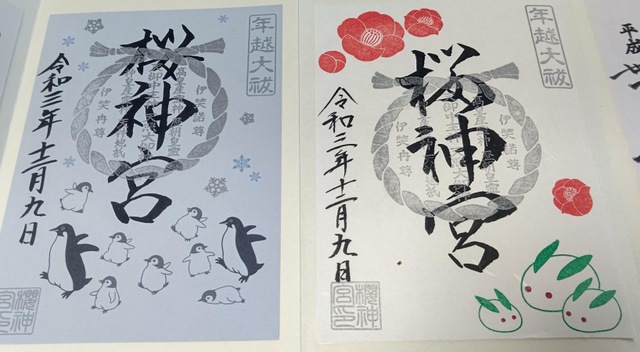 年越大祓
桜神宮
伊奘諾尊
伊奘冉尊
令和三年十二月九日
櫻神宮印
年越大祓
桜神宮
伊奘諾尊
伊奘冉尊
令和三年十二月九日
櫻神宮印
平成